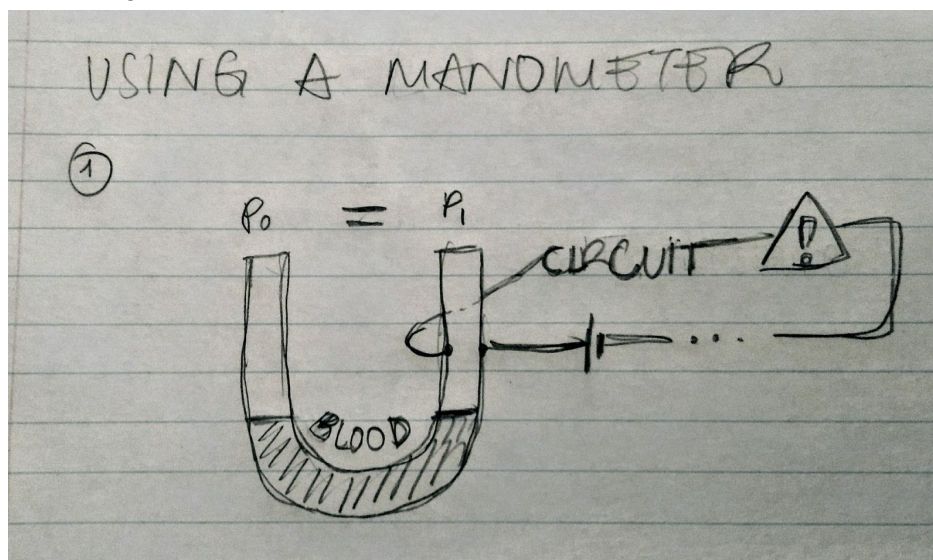 USING A MANOMETER
1
P0 = P1
CIRCUIT !
BLOOD
...